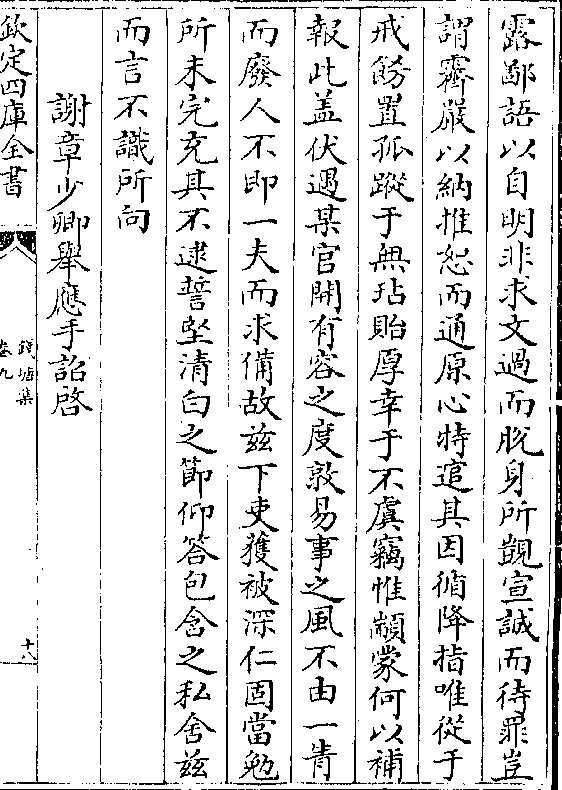 露鄙語以自明非求文過而脫身所覬宣誠而待罪豈
謂霽嚴以納推恕而通原心特逭其因循降指唯從于
戒飭置孤蹤于無玷貽厚幸于不虞竊惟顓蒙何以補
報此盖伏遇某官開有容之度敦易事之風不由一眚
而廢人不即一夫而求備故兹下吏獲被深仁固當勉
所未完充其不逮誓堅清白之節仰答包含之私舍兹
而言不識所向
謝章少卿舉應手詔啓
欽定四庫全書
錢塘集
卷九
十八